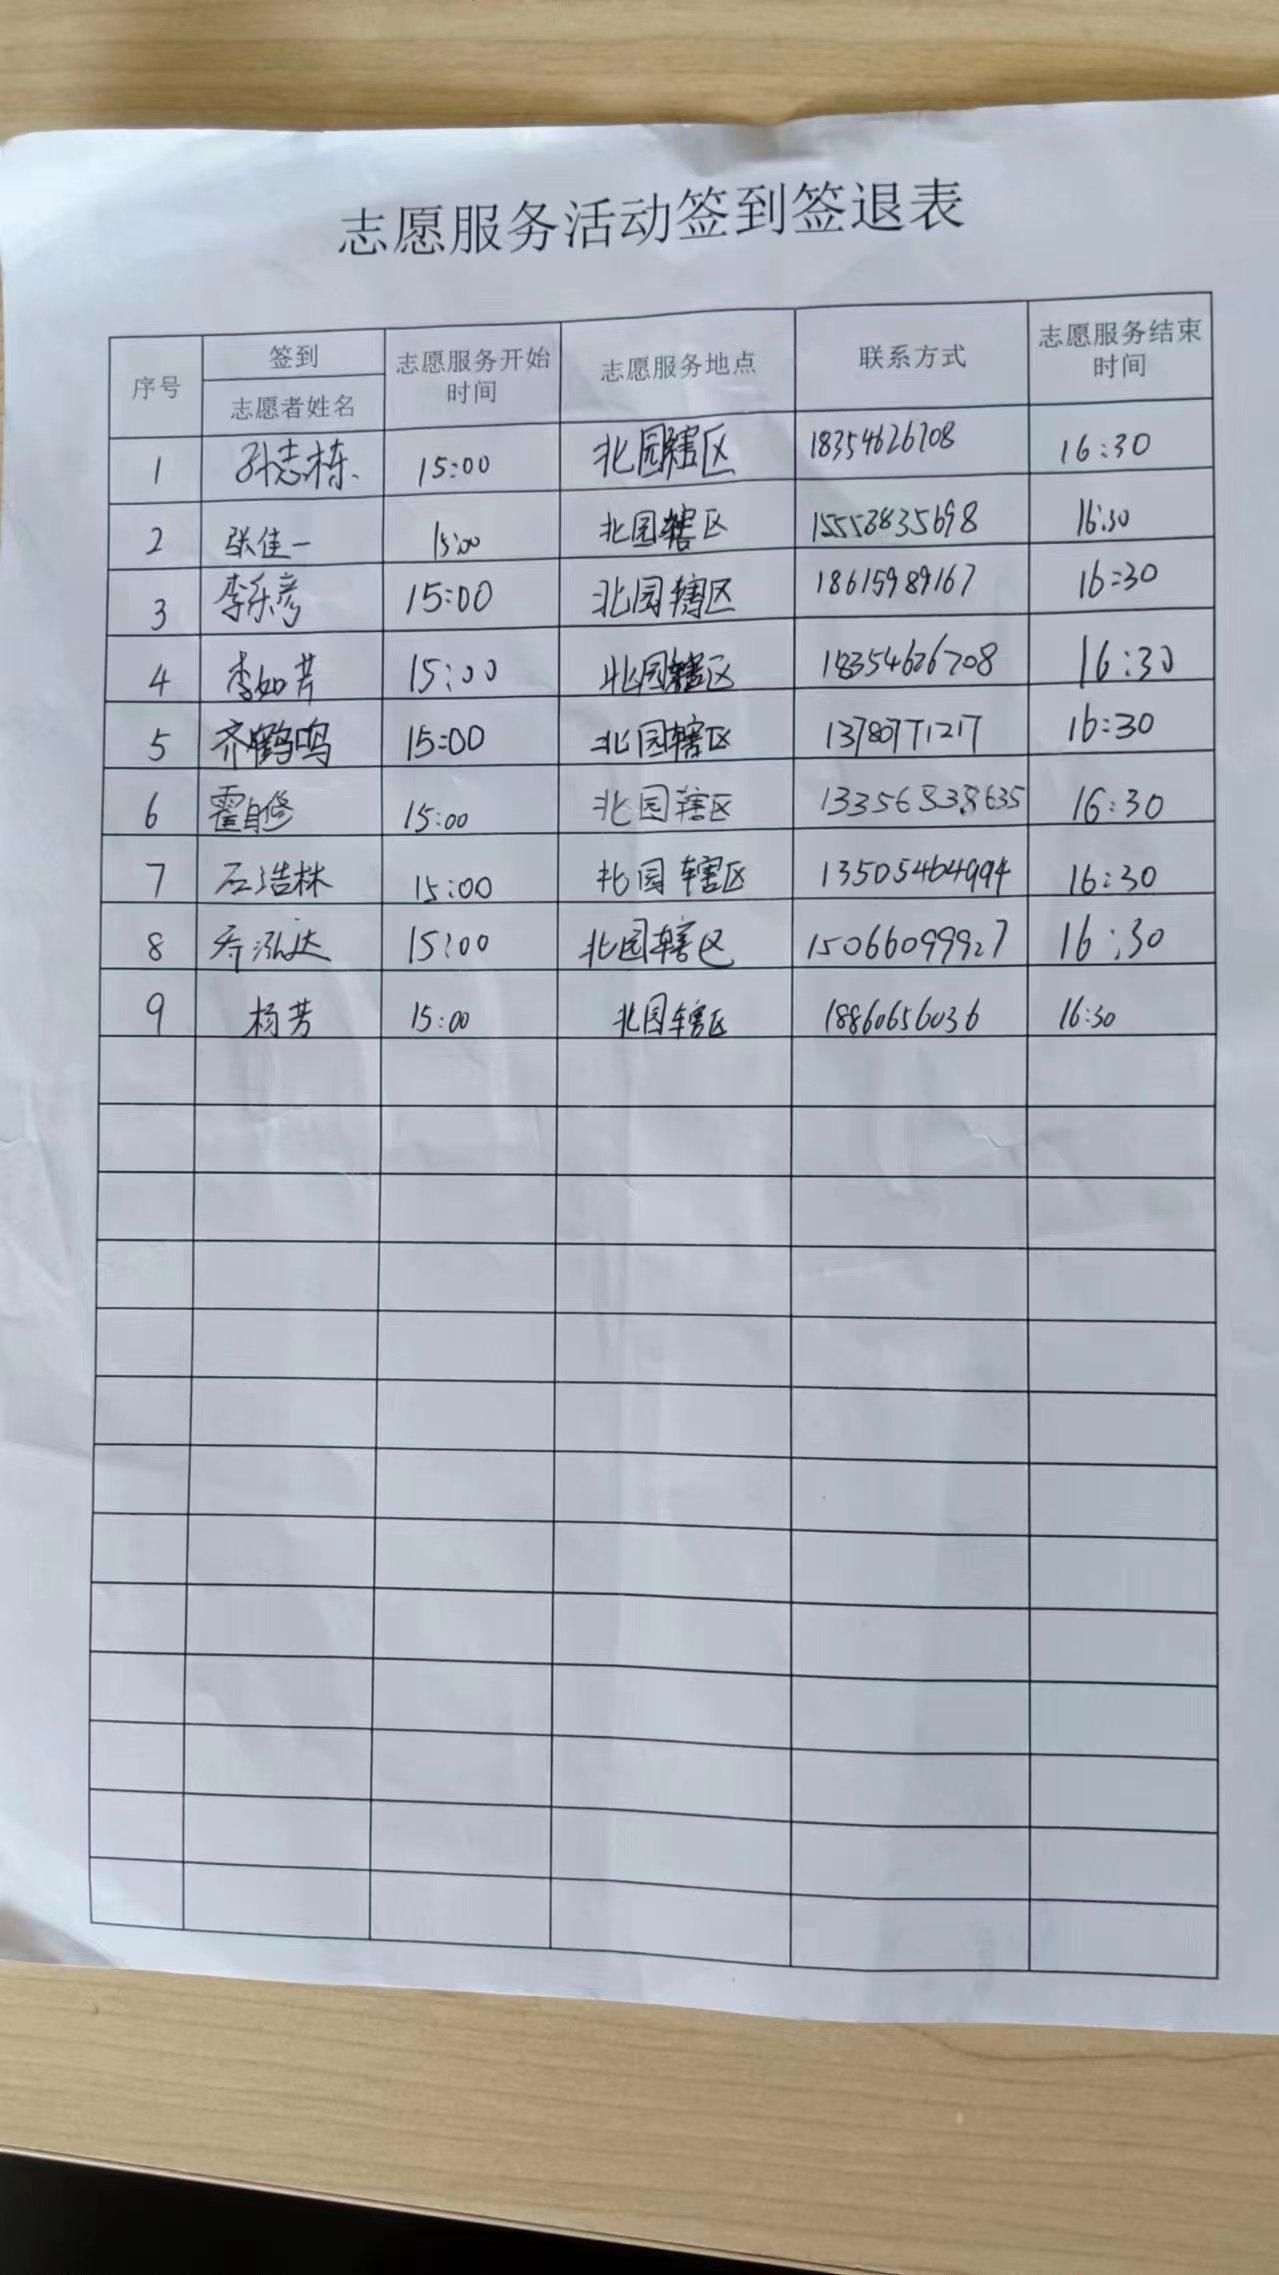 志愿服务活动签到签退表
序号 签到 志愿者姓名 志愿服务开始时间 志愿服务地点 联系方式 志愿服务结束时间
1 孙志栋 15:00 北园辖区 18354626708 16:30
2 张佳一 15:00 北园辖区 15553835698 16:30
3 李乐彦 15:00 北园辖区 18615989167 16:30
4 李如芳 15:00 北园辖区 18354626708 16:30
5 齐鹤鸣 15:00 北园辖区 13780771217 16:30
6 霍自修 15:00 北园辖区 13356838635 16:30
7 石浩林 15:00 北园辖区 13505464994 16:30
8 泓达 15:00 北园辖区 15066099927 16:30
9 杨芳 15:00 北园辖区 18860656036 16:30